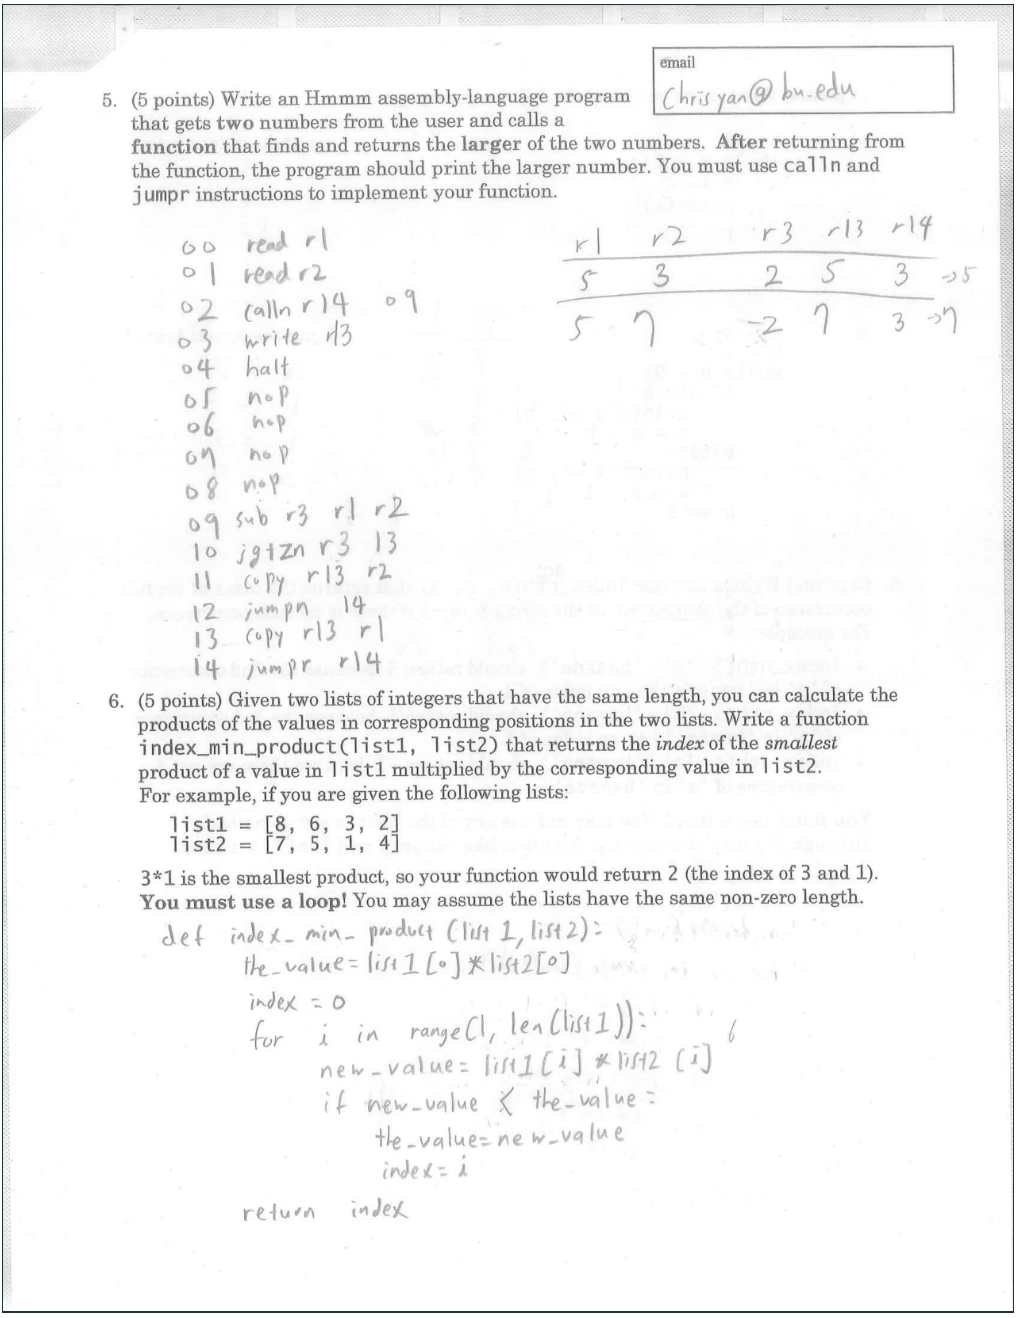 email
Chrisyan@bu.edu
5. (5 points) Write an Hmmm assembly-language program
that gets two numbers from the user and calls a
function that finds and returns the larger of the two numbers. After returning from
the function, the program should print the larger number. You must use calln and
jumpr instructions to implement your function.
00 read r1
01 read r2
02 calln r14 09
03 write r13
04 halt
05 nop
06 nop
07 nop
08 nop
09 sub r3 r1 r2
10 jgtzn r3 13
11 copy r13 r2
12 jumpn 14
13 copy r13 r1
14 jumpr r14
r1 r2 r3 r13 r14
5 3 2 5 3 ->5
5 7 -2 7 3 ->7
6. (5 points) Given two lists of integers that have the same length, you can calculate the
products of the values in corresponding positions in the two lists. Write a function
index_min_product(list1, list2) that returns the index of the smallest
product of a value in list1 multiplied by the corresponding value in list2.
For example, if you are given the following lists:
list1 = [8, 6, 3, 2]
list2 = [7, 5, 1, 4]
3*1 is the smallest product, so your function would return 2 (the index of 3 and 1).
You must use a loop! You may assume the lists have the same non-zero length.
def index_min_product (list1, list2):
the_value = list1[0] * list2[0]
index = 0
for i in range(1, len(list1)):
new_value = list1[i] * list2[i]
if new_value < the_value:
the_value = new_value
index = i
return index